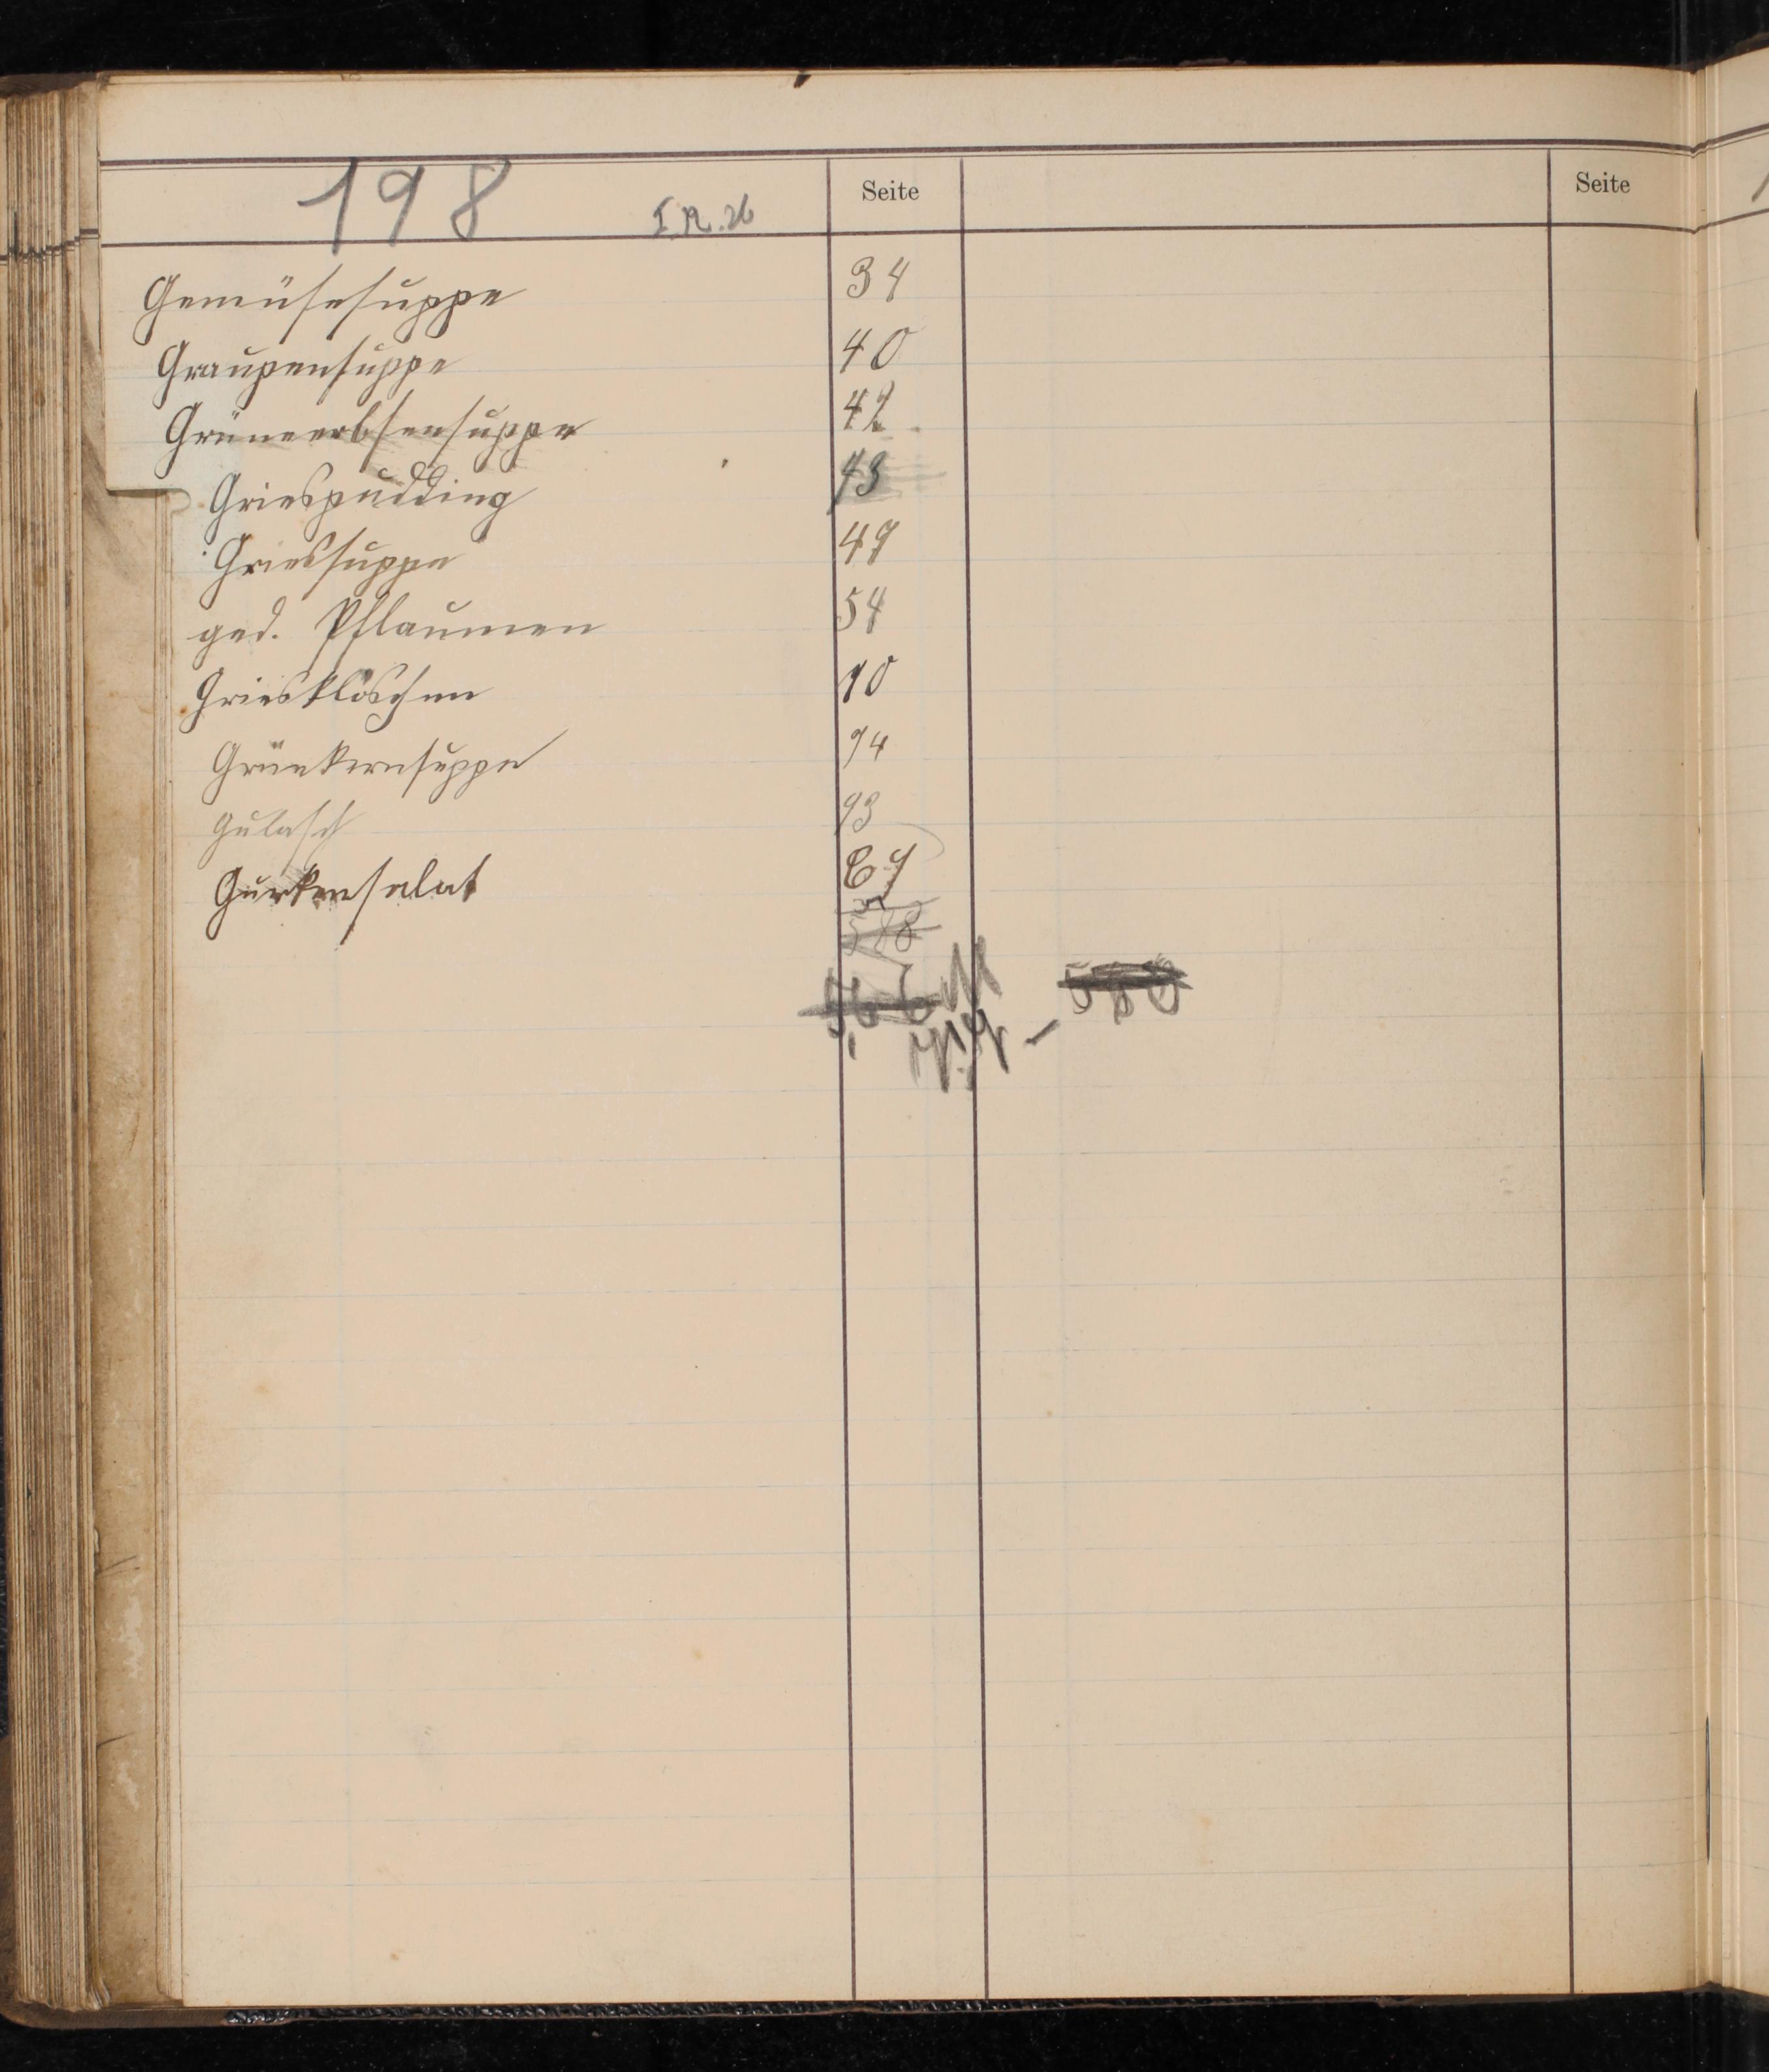 198
Seite
Seite
Gemüsesuppe 34
Graupensuppe 40
Grüneerbsensuppe 42
Griespudding 43
Griessuppe 49
ged. Pflaumen 54
Griesklöschen 10
Grünkernsuppe 74
Gulasch 93
Gurkensalat